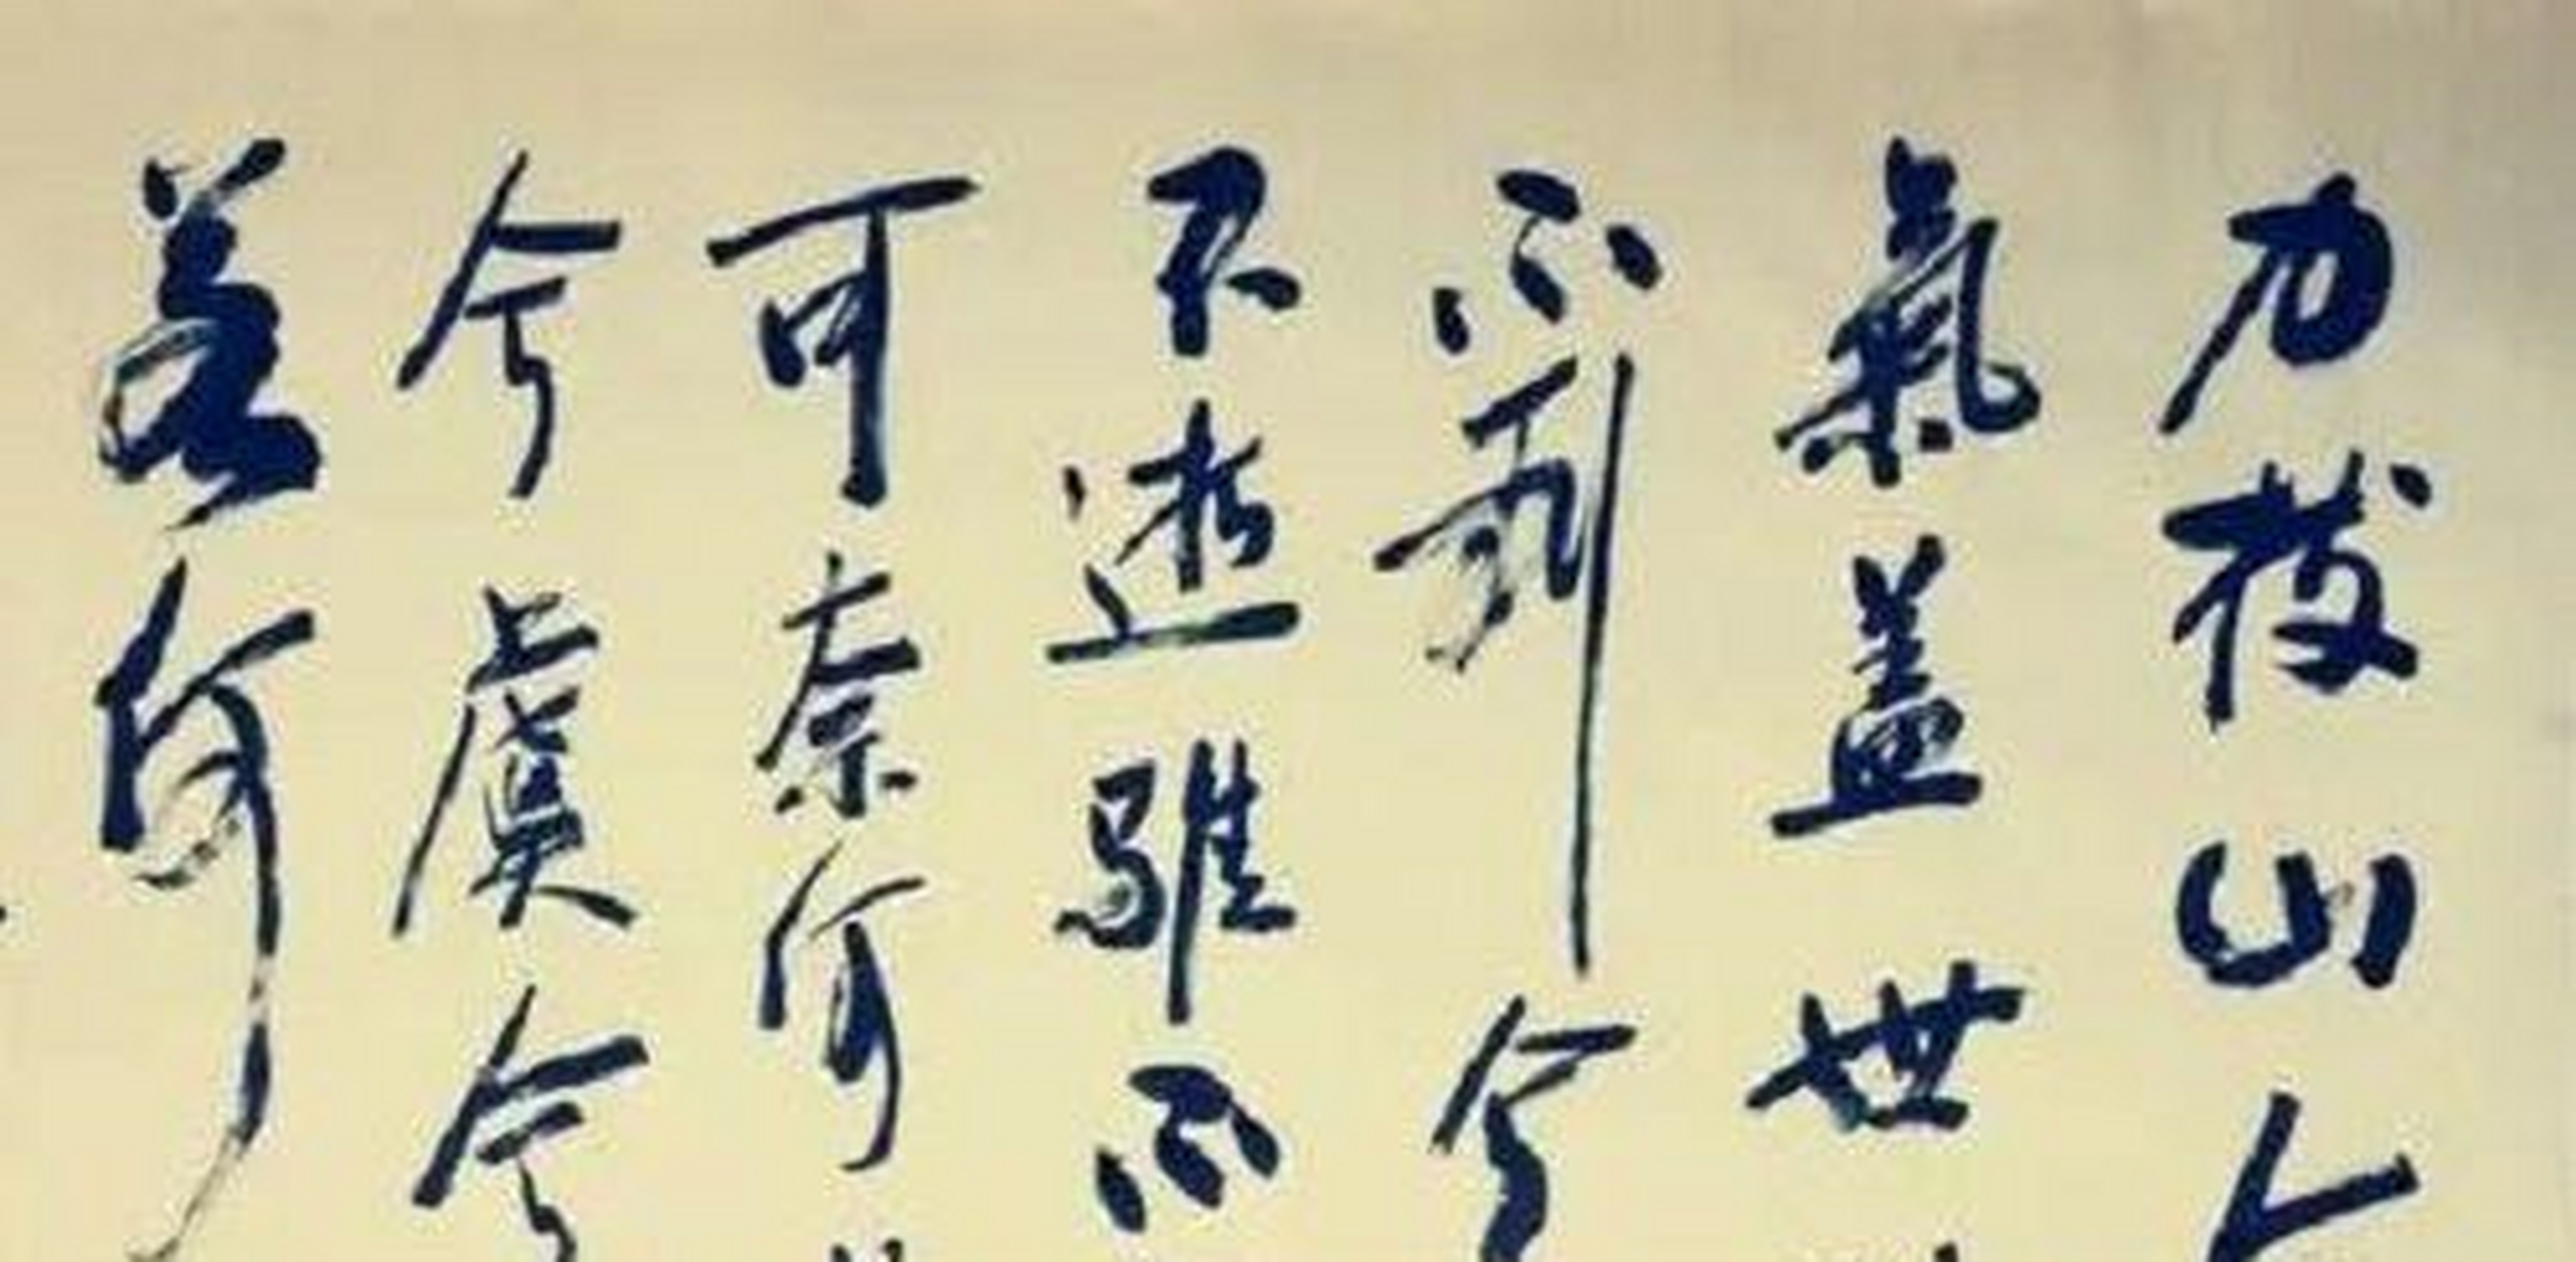 力拔山兮
氣蓋世
不利兮
不逝騅不
可奈何
兮虞兮
若何